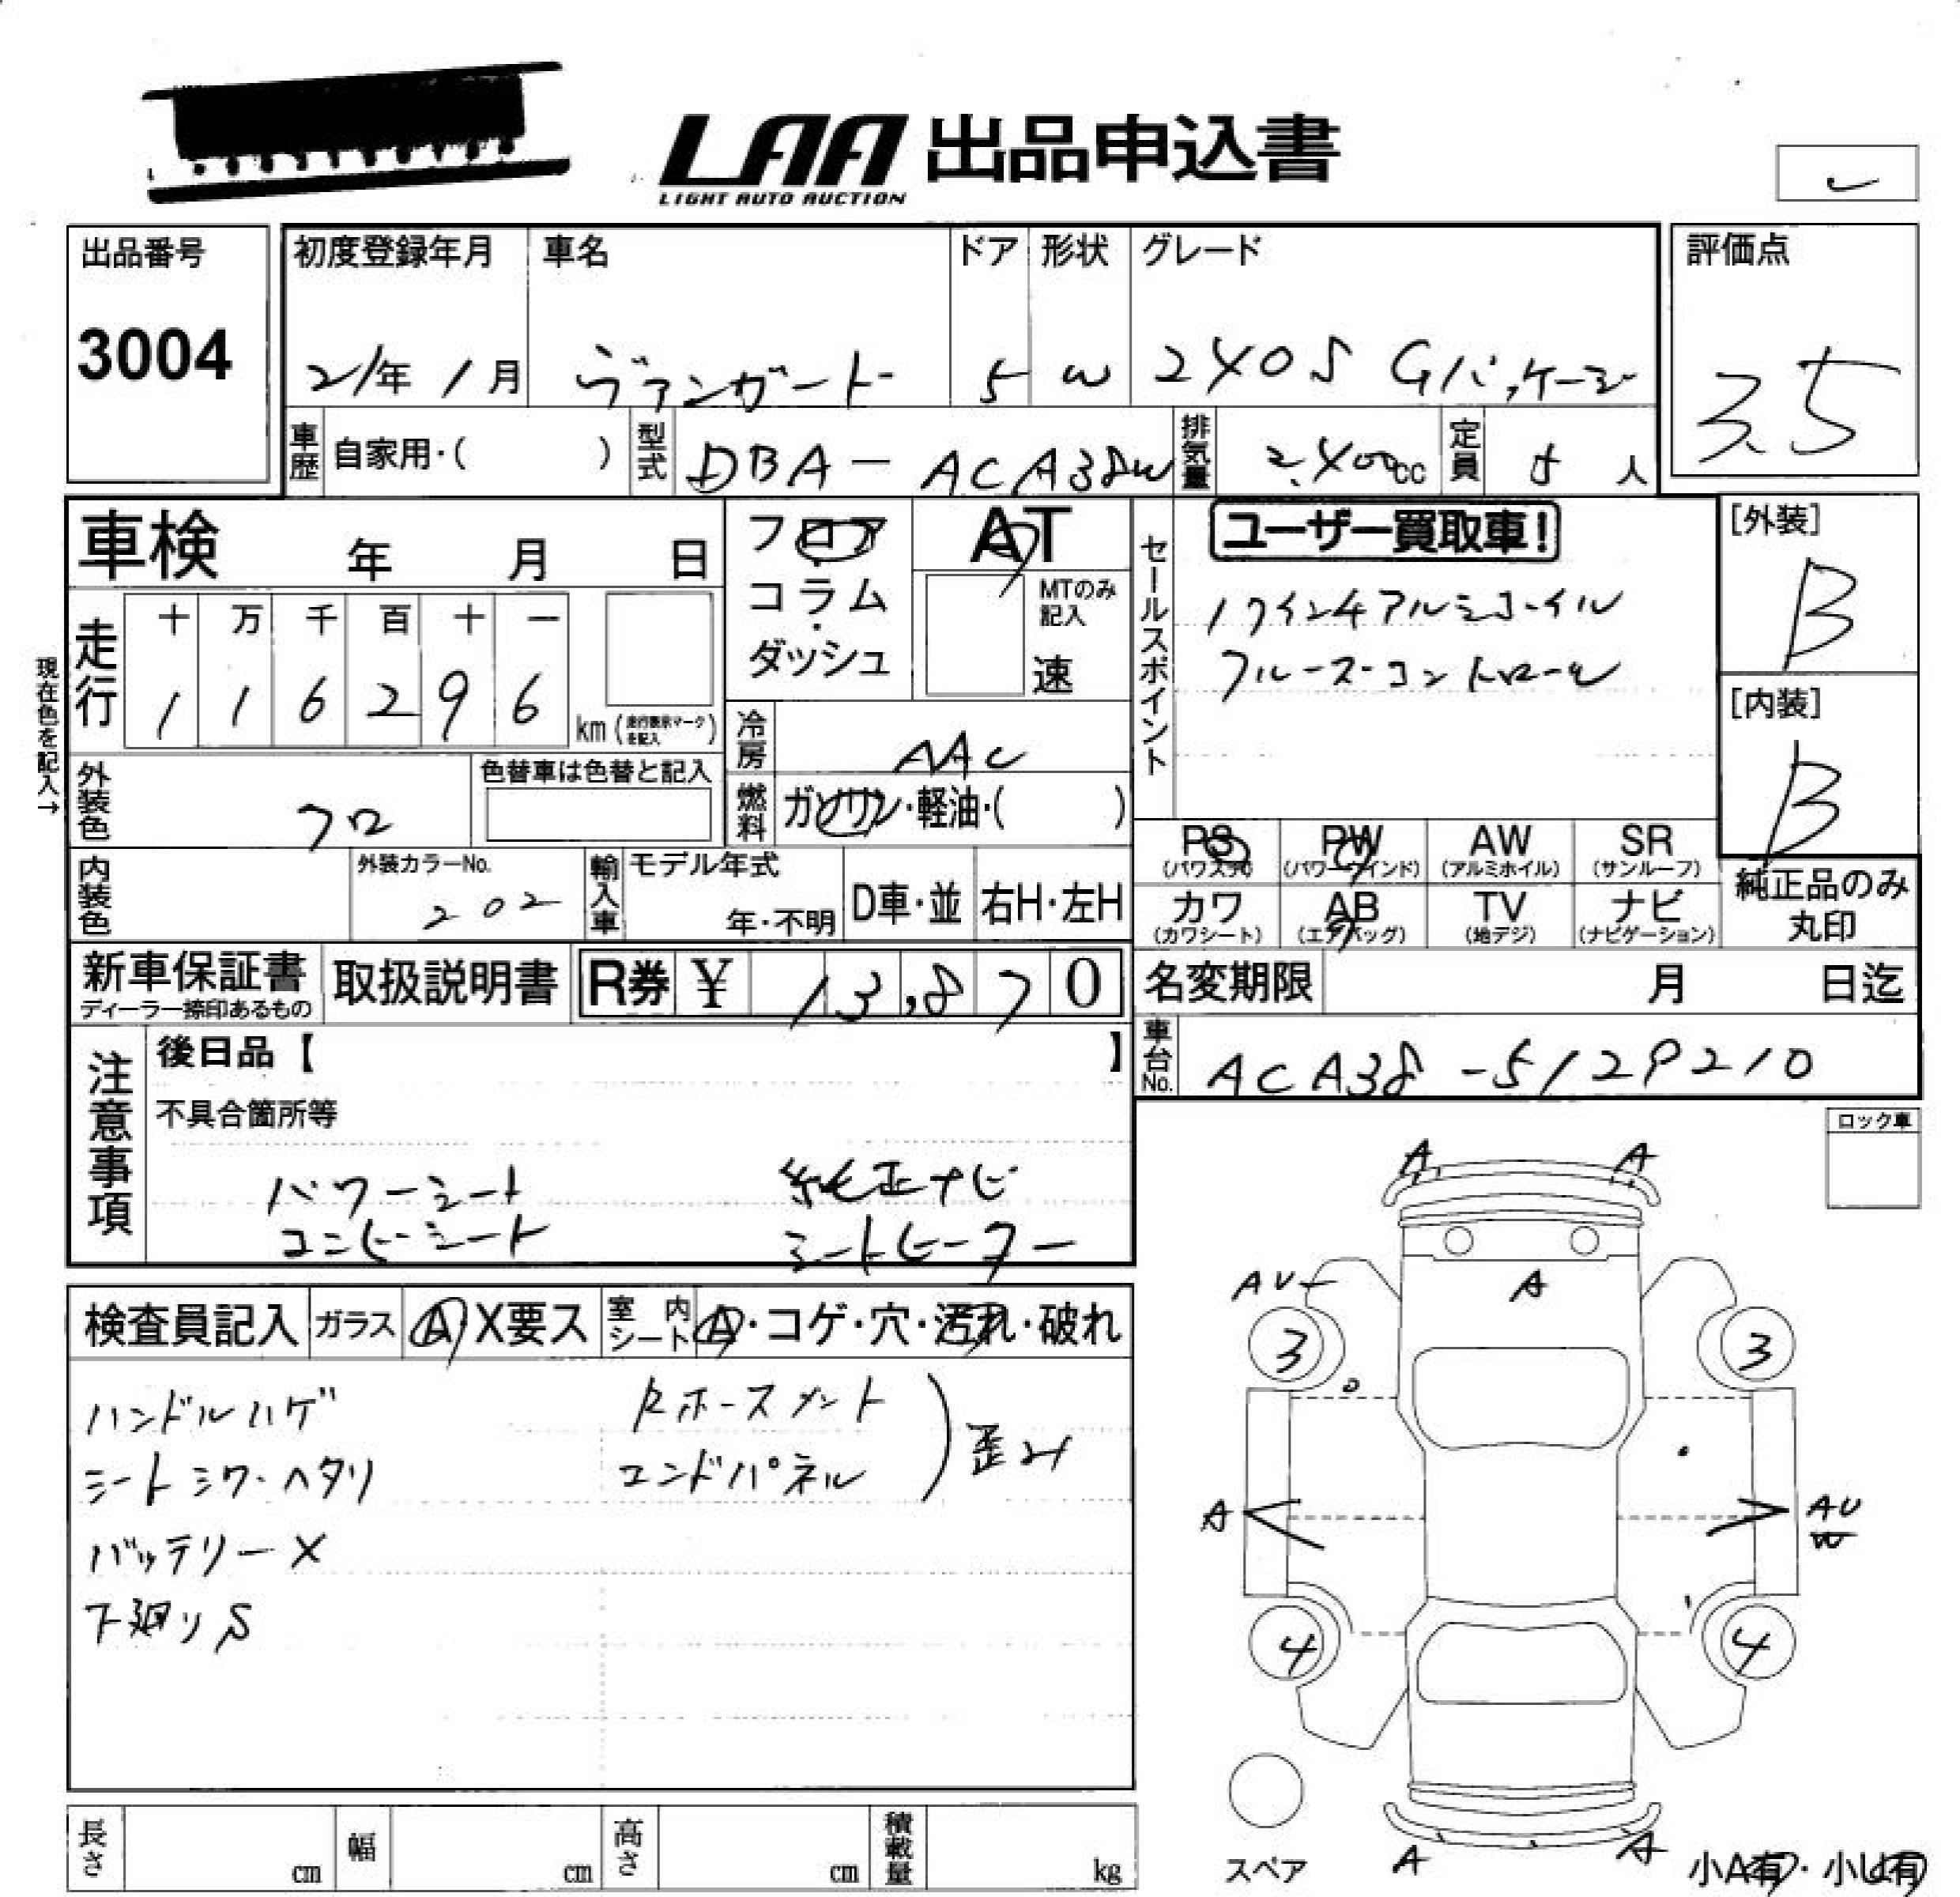 LAA 出品申込書
LIGHT AUTO AUCTION
出品番号
3004
初度登録年月
21年 1月
車名
ヴァンガード
ドア
5
形状
W
グレード
240S Gパッケージ
評価点
3.5
車歴
自家用・( )
型式
DBA-ACA38W
排気量
2,400cc
定員
5人
車検 年 月 日
フロア
・
コラム
・
ダッシュ
AT
MTのみ
記入
速
セールスポイント
ユーザー買取車!
17インチアルミホイル
クルーズコントロール
[外装]
B
[内装]
B
現在色を記入→
走行
十 万 千 百 十 一
1 1 6 2 9 6
km (走行表示マークを記入)
冷房
AAC
燃料
ガソリン・軽油・( )
外装色
クロ
色替車は色替と記入
内装色
外装カラーNo.
202
輸入車
モデル年式
年・不明
D車・並
右H・左H
PS
(パワステ)
PW
(パワーウインド)
AW
(アルミホイル)
SR
(サンルーフ)
カワ
(カワシート)
AB
(エアバッグ)
TV
(地デジ)
ナビ
(ナビゲーション)
純正品のみ
丸印
新車保証書
ディーラー捺印あるもの
取扱説明書
R券 ¥ 13,870
名変期限 月 日迄
車台No.
ACA38-5129210
注意事項
後日品【 】
不具合箇所等
パワーシート 純正ナビ
コンビシート シートヒーター
ロック車
検査員記入
ガラス
A X要ス
室内
シート
A・コゲ・穴・汚れ・破れ
ハンドルハゲ
シートシワ・ヘタリ
バッテリーX
下廻りS
Rホースメント
エンドパネル
) 歪み
A A
AU
A
3 3
A
AU
W
4 4
A A
スペア
小A有・小U有
長さ cm
幅 cm
高さ cm
積載量 kg